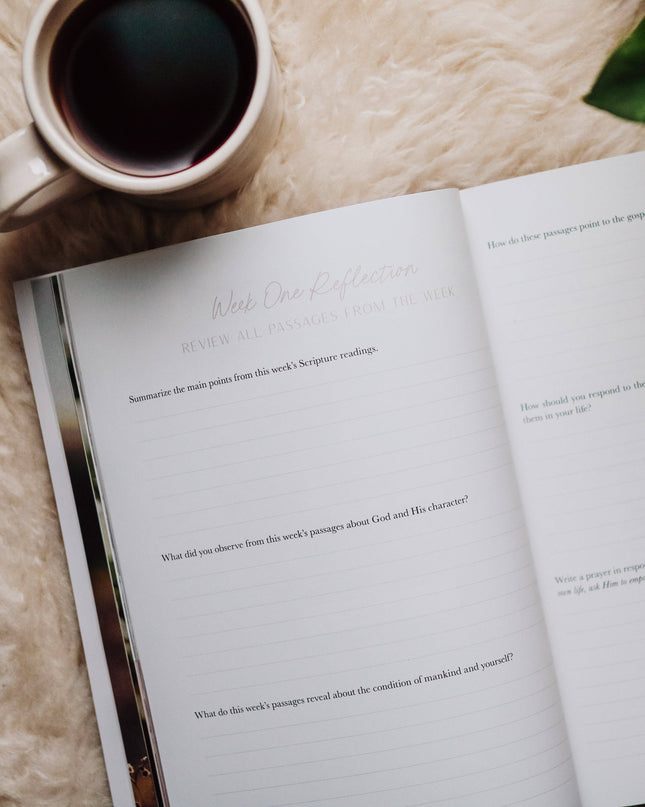 Week One Reflection
REVIEW ALL PASSAGES FROM THE WEEK
Summarize the main points from this week's Scripture readings.
What did you observe from this week's passages about God and His character?
What do this week's passages reveal about the condition of mankind and yourself?
How do these passages point to the gosp
How should you respond to the
them in your life?
Write a prayer in respo
own life, ask Him to empo